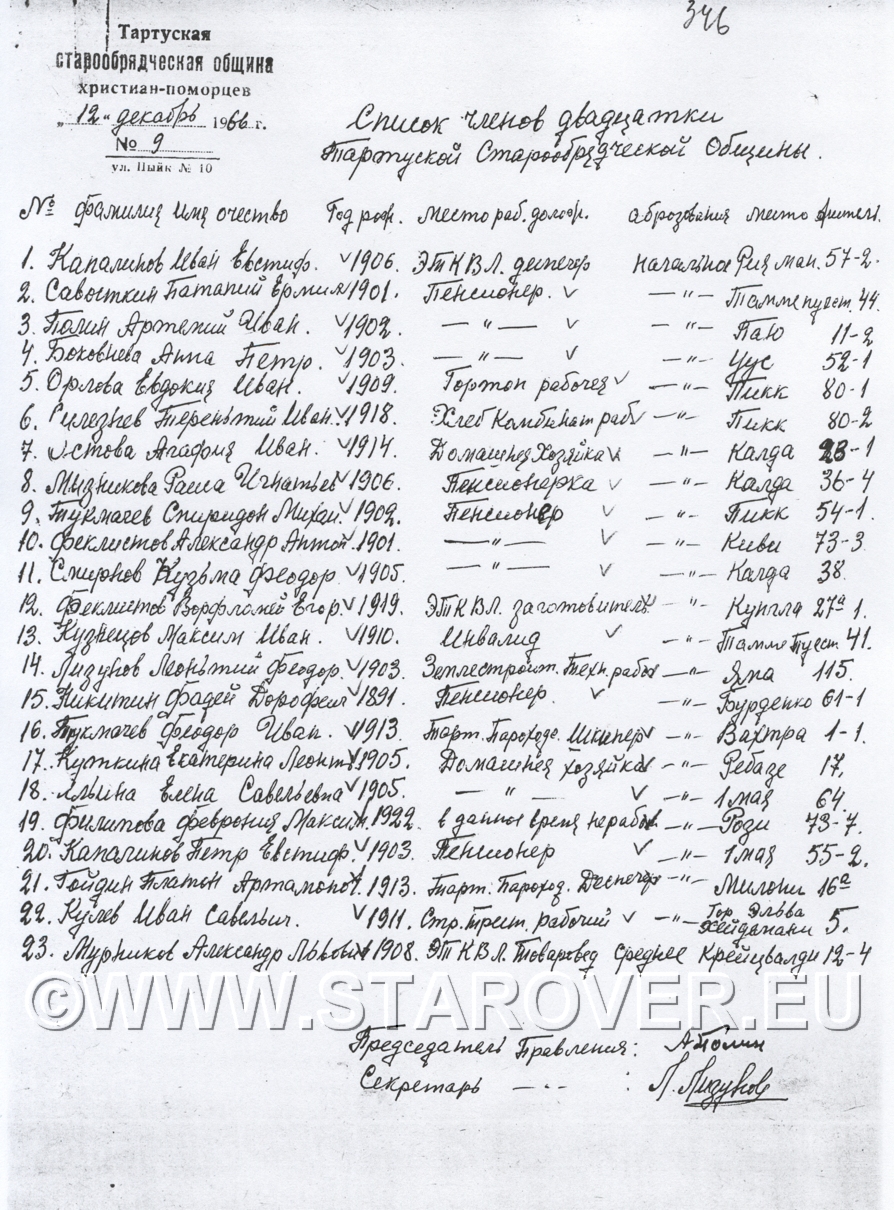 346
Тартуская
старообрядческая община
христиан-поморцев
„12“ декабрь 1966 г.
№ 9
ул. Пыйк № 10
Список членов двадцатки
Тартуской Старообрядческой Общины.
№ фамилия имя очество Год рож. место раб. долж. аброзования место жител.
1. Капалинов Иван Евстиф. ✓ 1906. ЭТКВЛ. начальное ман. 57-2.
2. Савосткин Патапий Ермил ✓ 1901. Пенсионер. ✓ —"— Тамме пуест. 44.
3. Полин Артемий Иван. ✓ 1902. —"— ✓ —"— Паю 11-2
4. Боковнева Анна Петр. ✓ 1903. —"— ✓ —"— Уус 52-1
5. Орлова Евдокия Иван. ✓ 1909. Гортоп рабочея ✓ —"— Пикк 80-1
6. Терентий Иван. ✓ 1918. Хлеб Комбинат раб ✓ —"— Пикк 80-2
7. Агафия Иван. ✓ 1914. Домашнея Хозяйка ✓ —"— Калда 23-1
8. Мызникова Раиса Игнатьев ✓ 1906. Пенсионерка ✓ —"— Калда 36-4
9. Тукмачев Спиридон Михаи. ✓ 1902. Пенсионер ✓ —"— Пикк 54-1.
10. Феклистов Александр Антон. ✓ 1901. —"— ✓ —"— Киви 73-3
11. Смирнов Кузьма Феодор. ✓ 1905. —"— ✓ —"— Калда 38.
12. Феклистов Ворфломей Егор. ✓ 1919. ЭТКВЛ. заготовитель ✓ —"— Кунгла 27а 1.
13. Кузнецов Максим Иван. ✓ 1910. Инвалид ✓ —"— Тамме Пуест. 41.
14. Лизунов Леонтий Феодор. ✓ 1903. Землестроит. Техн. рабоч —"— Яма 115.
15. Никитин Фадей Дорофеил ✓ 1891. Пенсионер. ✓ —"— Бурденко 61-1
16. Тукмачев Феодор Иван. ✓ 1913. Тарт. Пароходс. Шкипер ✓ —"— Вахтра 1-1.
17. Куткина Екатерина Леонт. ✓ 1905. Домашнея хозяйка ✓ —"— Ребазе 17.
18. Ильина Елена Савельевна ✓ 1905. —"— ✓ —"— 1 мая 64.
19. Филипова Феврония Максим. 1922. в данное время неработ. —"— Рози 73-7.
20. Капалинов Петр Евстиф. ✓ 1903. Пенсионер ✓ —"— 1 мая 55-2.
21. Гойдин Платон Артамонов. 1913. Тарт. Пароход. Деспечер —"— Милони 16а
22. Кулев Иван Савельич. ✓ 1911. Стр. трест. рабочий ✓ —"— Гор. Эльва Хейдемани 5.
23. Мурников Александр Львович 1908. ЭТКВЛ. Товаровед Среднее Крейцвалди 12-4
©WWW.STAROVER.EU
Председатель Правления: А Полин
Секретарь —"— : Л. Лизунов